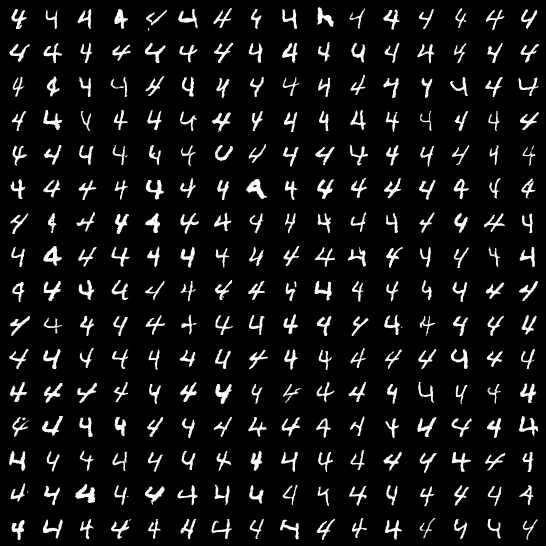 4 4 4 4 4 4 4 4 4 4 4 4 4 4 4
4 4 4 4 4 4 4 4 4 4 4 4 4 4 4 4
4 4 4 4 4 4 4 4 4 4 4 4 4 4 4 4
4 4 4 4 4 4 4 4 4 4 4 4 4 4 4 4
4 4 4 4 4 4 4 4 4 4 4 4 4 4 4
4 4 4 4 4 4 4 4 4 4 4 4 4 4 4 4
4 4 4 4 4 4 4 4 4 4 4 4 4 4 4 4
4 4 4 4 4 4 4 4 4 4 4 4 4 4 4 4
4 4 4 4 4 4 4 4 4 4 4 4 4 4 4 4
4 4 4 4 4 4 4 4 4 4 4 4 4 4 4 4
4 4 4 4 4 4 4 4 4 4 4 4 4 4 4 4
4 4 4 4 4 4 4 4 4 4 4 4 4 4 4 4
4 4 4 4 4 4 4 4 4 4 4 4 4 4 4 4
4 4 4 4 4 4 4 4 4 4 4 4 4 4 4 4
4 4 4 4 4 4 4 4 4 4 4 4 4 4 4 4
4 4 4 4 4 4 4 4 4 4 4 4 4 4 4 4